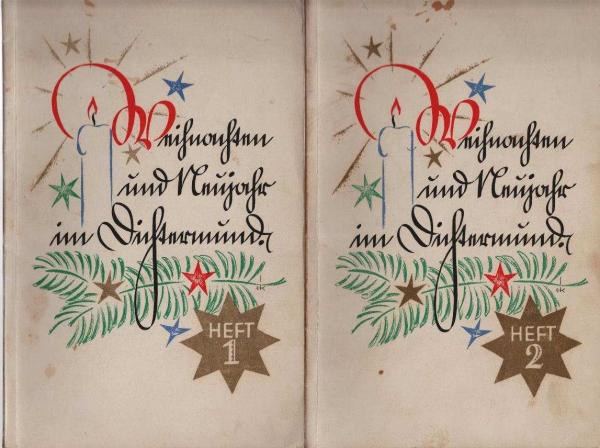 Weihnachten
und Neujahr
im Dichtermund.
HEFT
1
Weihnachten
und Neujahr
im Dichtermund.
HEFT
2